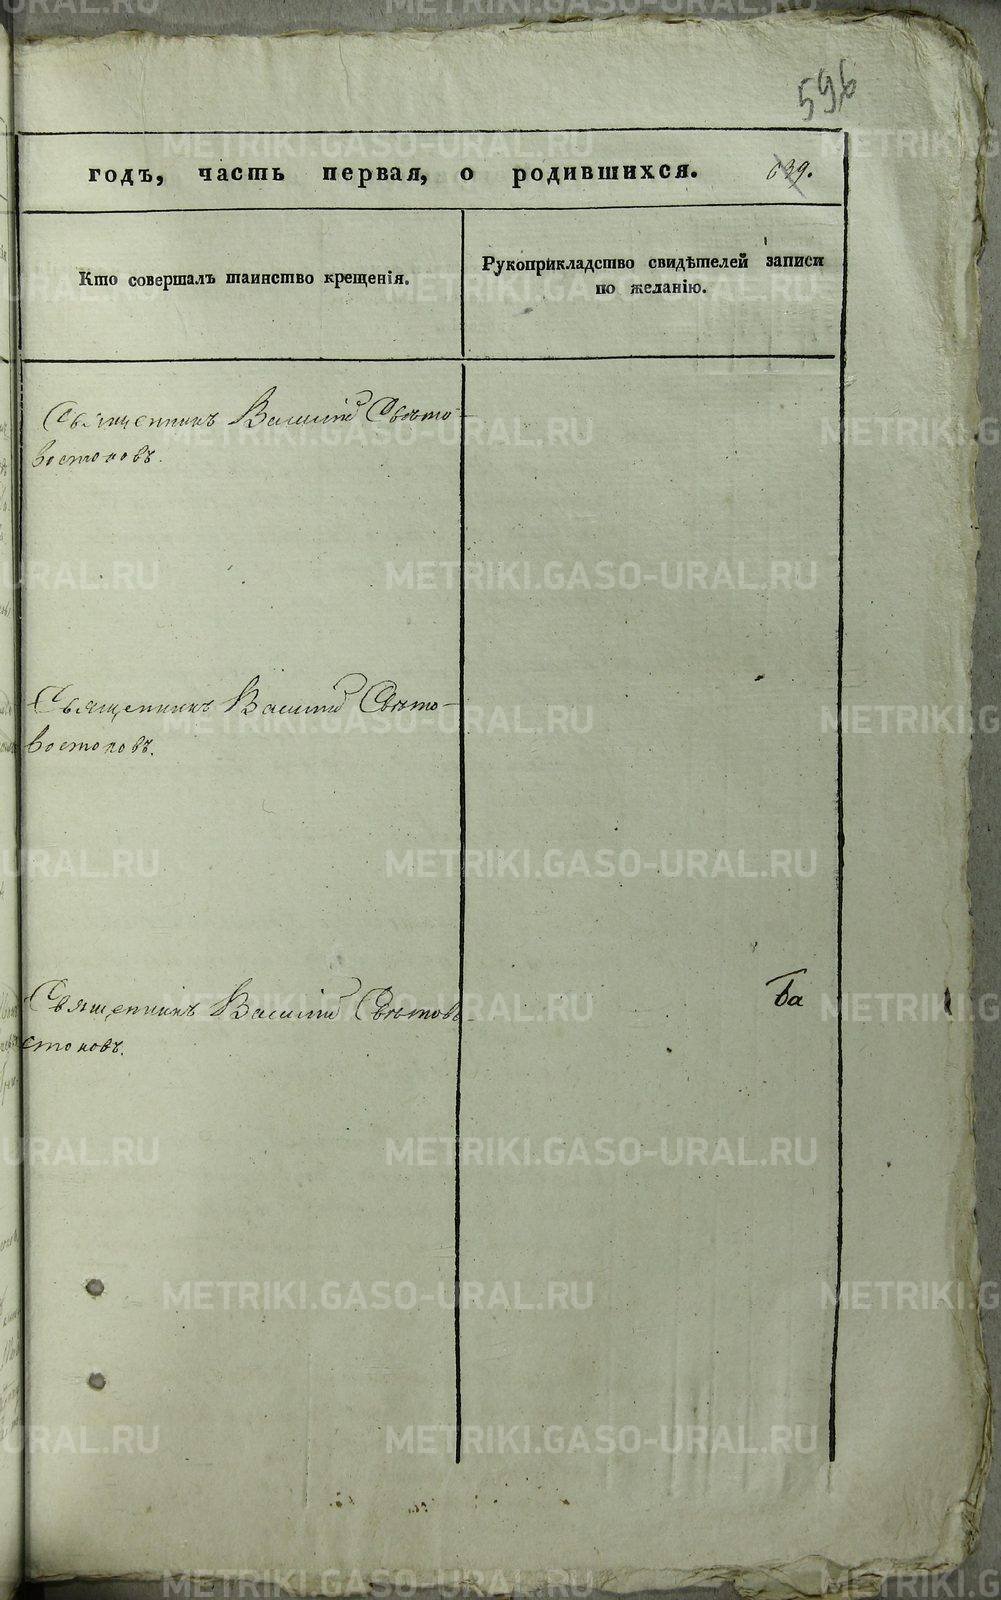 596
годъ, часть первая, о родившихся. 639.
Кто совершалъ таинство крещенія.
Рукоприкладство свидѣтелей записи
по желанію.
Священникъ Василій Свѣто-
востоковъ.
Священникъ Василій Свѣто-
востоковъ.
Священникъ Василій Свѣтово-
стоковъ.
ба
METRIKI.GASO-URAL.RU